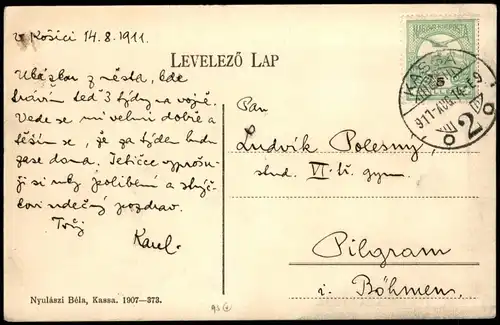 v Košici 14.8.1911.
LEVELEZŐ LAP
z města, kde
trávím teď 3 týdny na vojně.
Vede se mi velmi dobře a
těším se, že za týden budu
zase doma. Tetičce
si ruky políbení a
vděčný pozdrav.
Tvůj
Karel.
Pan
Ludvík Polesný,
stud. VI. tř. gym.
Pilgram
i. Böhmen
KASSA
911 AUG 14
2
Nyulászi Béla, Kassa. 1907—373.